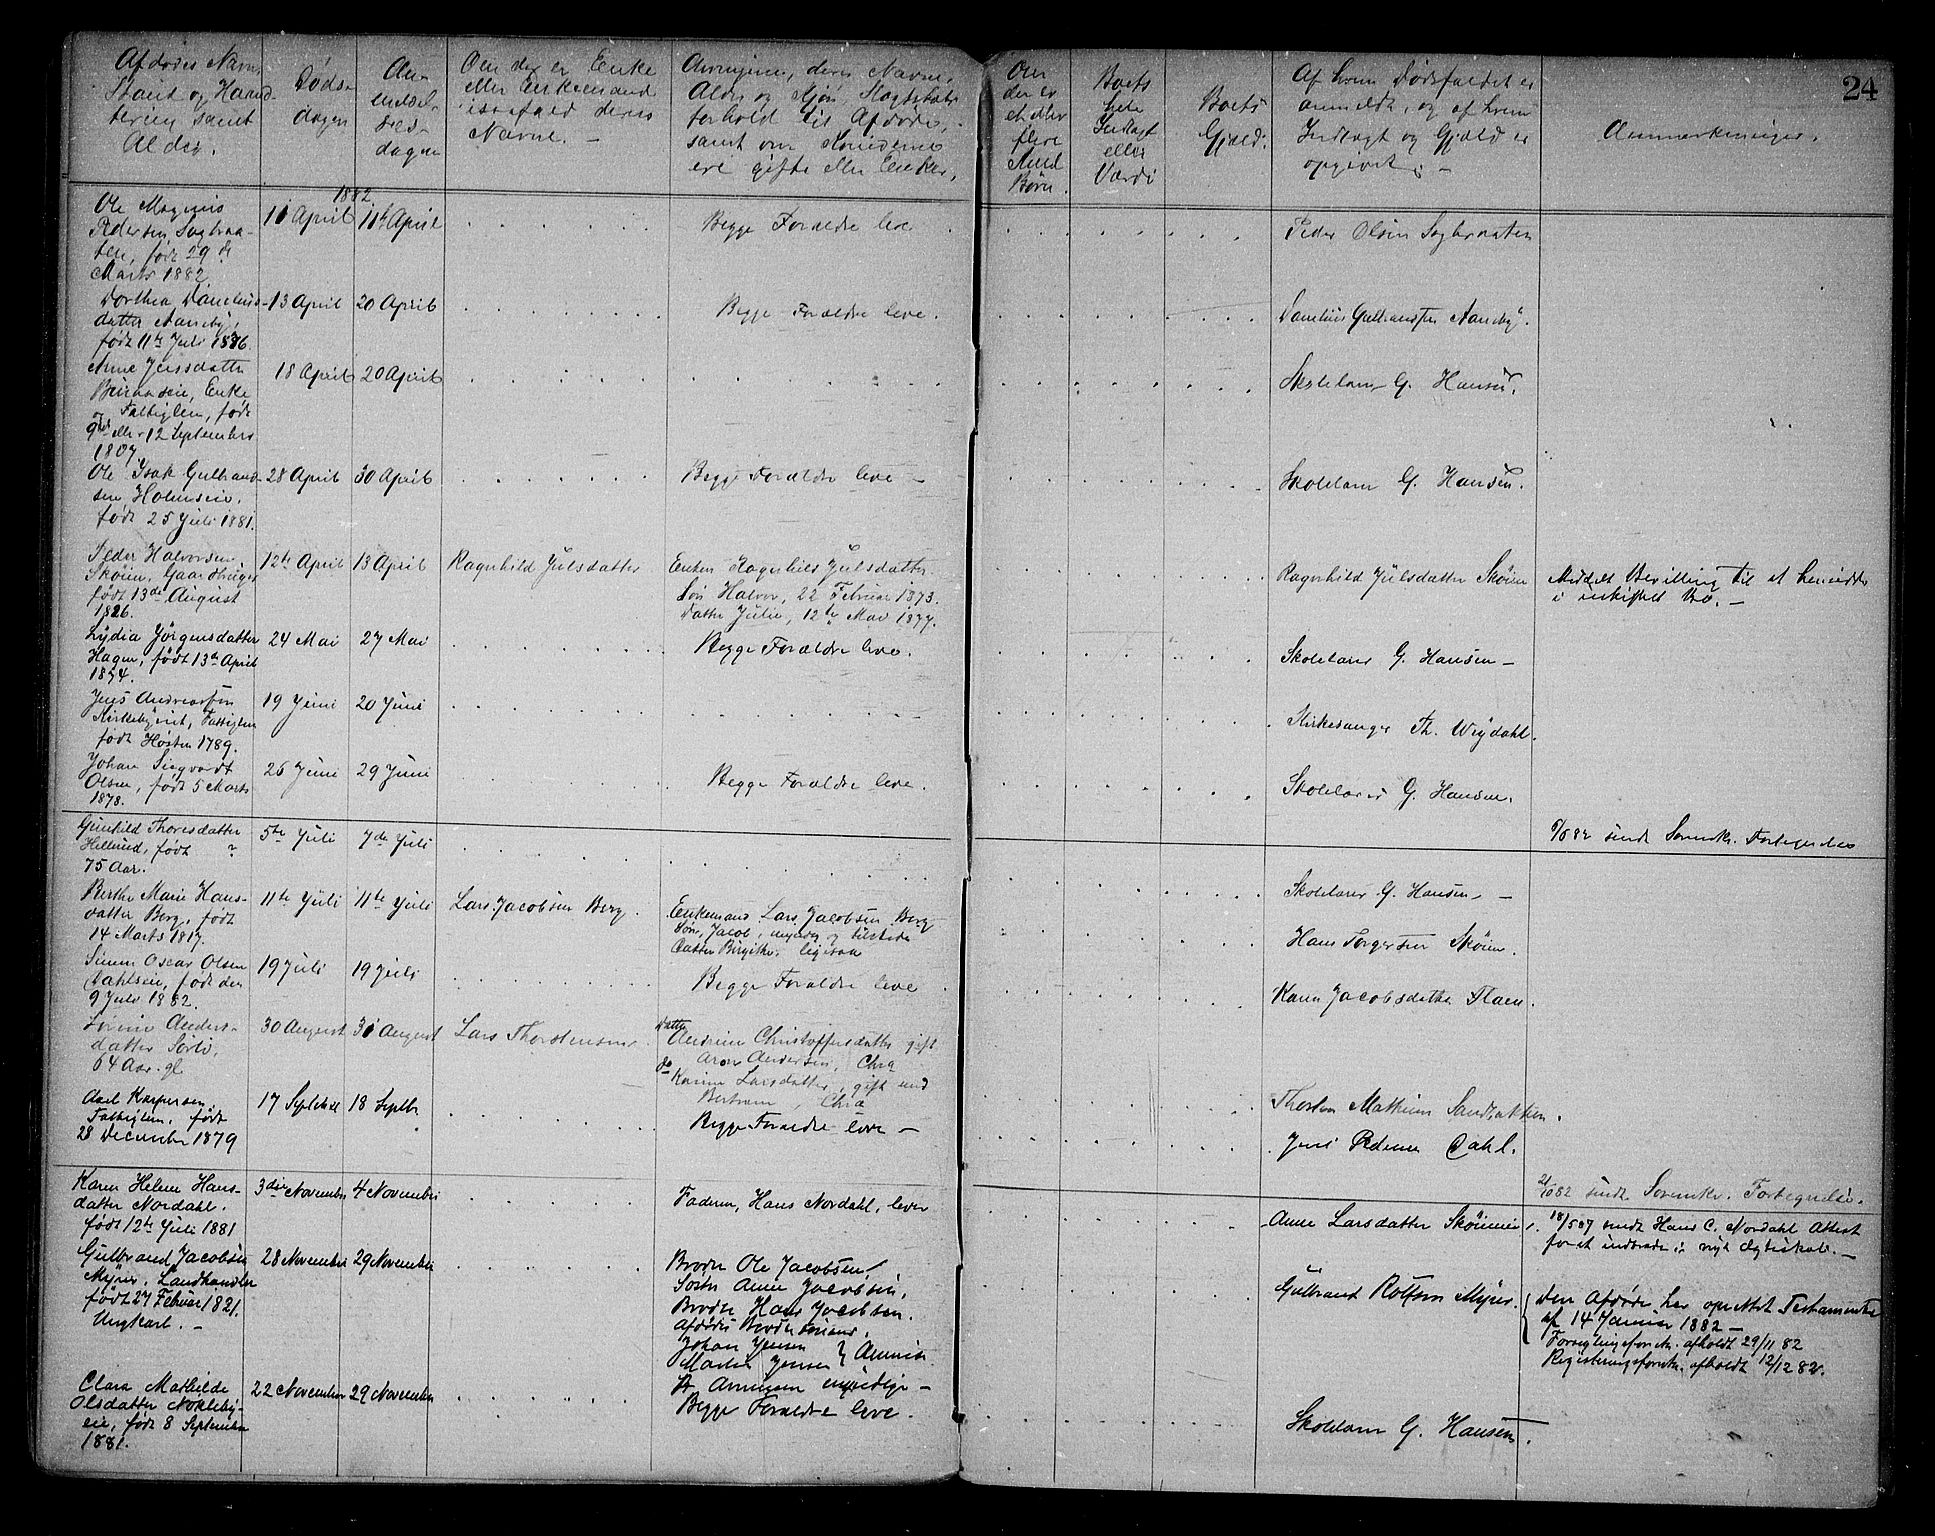 24
Afdødes Navn,
Stand og Hand-
tering samt
Alder.
Døds-
dagen
An-
meldel-
ses-
dagen
Om der er Enke
eller Enkemand
i saafald deres
Navne. -
Arvingerne, deres Navne,
Alder og Kjøn, Slægtskabs
forhold til Afdøde,
samt om Kvinderne
ere gifte eller Enker.
Om
der er
et eller
flere
Umd.
Børn.
Boets
hele
Indtægt
eller
Værdi
Boets
Gjæld.
Af hvem Dødsfaldet er
anmeldt, og af hvem
Indtægt og Gjæld er
opgivet. -
Anmærkninger.
1882
Ole Magnus
Pedersen Sagbraa-
ten, født 29 de
Marts 1882
11 April
11te April
Begge Forældre leve
Peder Olsen Sagbraaten
Dorthea Danielsdatter
Aaneby,
født 11te Juli 1876.
13 April
20 April
Begge Forældre leve.
Danelius Gulbrandsen Aaneby.
Anne Jensdatter
Enke
og Fattiglem, født
9de eller 12 September
1807.
18 April
20 April
Skolelærer G. Hansen.
Ole Isak Gulbrand-
sen Holmseie.
født 25 Juli 1881.
28 April
30 April
Begge Forældre leve -
Skolelærer G. Hansen.
Peder Halvorsen
Skøien, Gaardbruger
født 13de August
1826.
12te April
13 April
Ragnhild Julsdatter
Enken Ragnhild Julsdatter
Søn Halvor, 22 Februar 1873.
Datter Julie, 12te Mai 1877.
Ragnhild Julsdatter Skøien
Meddelt Bevilling til at hensidde
i uskiftet Bo. -
Lydia Jørgensdatter
Hagen, født 13de April
1854.
24 Mai
27 Mai
Begge Forældre leve.
Skolelærer G. Hansen -
Jens Andreassen
Kirkebyeiet, Fattiglem
født Høsten 1789.
19 Juni
20 Juni
Kirkesanger Th. Weydahl.
Johan Sigvardt
Olsen, født 5 Marts
1878.
26 Juni
29 Juni
Begge Forældre leve.
Skolelærer G. Hansen.
Gunhild Thoresdatter
Hellerud, født ?
75 Aar.
5te Juli
7de Juli
82 sendt Sorenskr. Fortegnelse
Skolelærer G. Hansen -
Berthe Marie Hans-
datter Berg, født
14 Marts 1817.
11te Juli
11te Juli
Lars Jacobsen Berg.
Enkemand Lars Jacobsen Berg
Søn, Jacob, myndig og tilstede
Datter Birgithe, ligesaa
Hans Torgersen Skøien.
Simen Oscar Olsen
Dahlseie, født den
9 Juli 1882.
19 Juli
19 Juli
Begge Forældre leve
Karen Jacobsdatter Flaen.
Sørine Anders-
datter Sørli,
64 Aar. gl
30 August
31 August
Lars Thorstensen.
Datter
Andrine Christoffersdatter gift
Aron Andersen, Chra
do
Karine Larsdatter, gift med
Bertram , Chra
Thorsten Mathisen Sandbakken.
Axel Kaspersen,
Fattiglem, født
28 December 1879
17 Septebr
18 Septbr
Begge Forældre leve -
Jens Pedersen Dahl.
82 sendt Sorenskr. Fortegnelse.
Karen Helene Hans-
datter Nordahl.
født 12te Juli 1881
3die November
4 November
Faderen, Hans Nordahl, lever
Anne Larsdatter Skøieneie.
18/5 87 sendt Hans C. Nordahl Attest
for at indtræde i nyt Ægteskab. -
Gulbrand Jacobsen
Myrer, Landhandler
født 27 Februar 1821.
Ungkarl. -
28 November
29 November
Broder Ole Jacobsen
Søster Anne Jacobsen,
Broder Hans Jacobsen.
Afdøde Broders
Johan Jensen
Martin Jensen } Amerika
Arvingerne myndige -
Gulbrand Rolfsen Myrer.
{ Den Afdøde har oprettet Testamente
af 14 Januar 1882 -
Forseglingsforretn. afholdt 29/11 82
Registreringsforretn. afholdt 12/12 82.
Clara Mathilde
Olsdatter Nokleby-
eie, født 8 September
1881.
22 November
29 November
Begge Forældre leve.
Skolelærer G. Hansen.